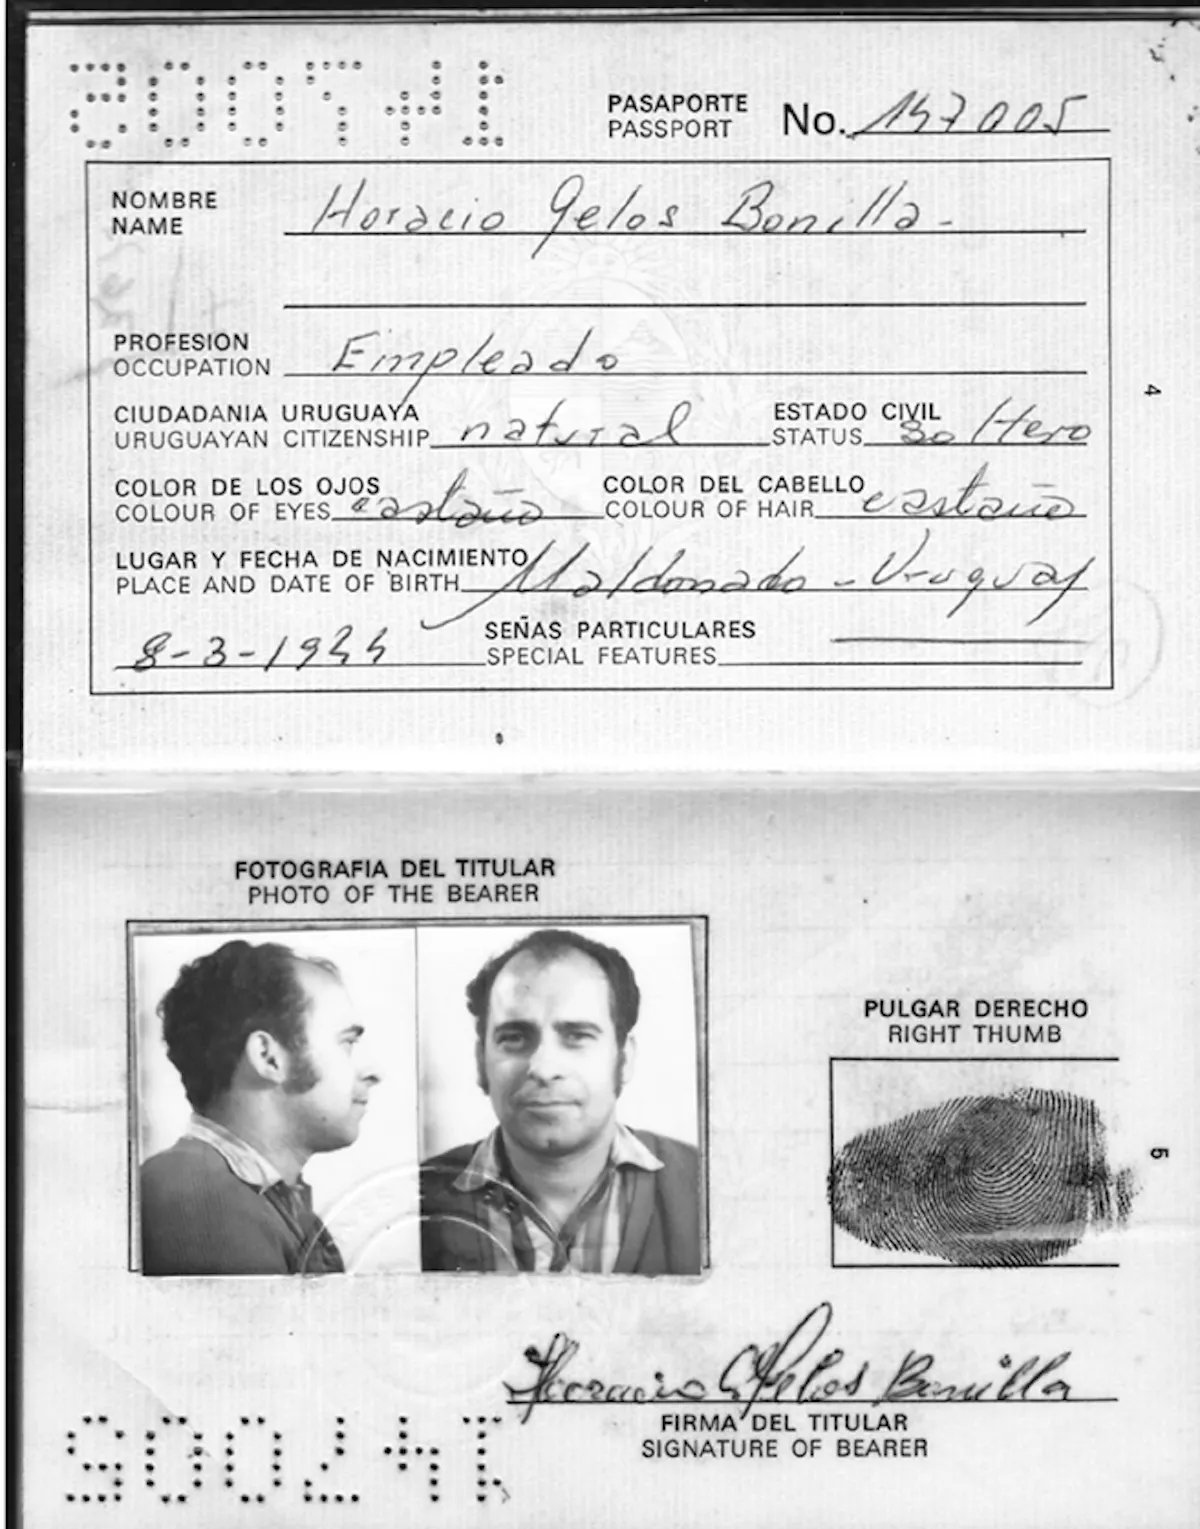 147005
PASAPORTE
PASSPORT
No. 147005
NOMBRE
NAME
Horacio Gelos Bonilla-
PROFESION
OCCUPATION
Empleado
CIUDADANIA URUGUAYA
URUGUAYAN CITIZENSHIP
natural
ESTADO CIVIL
STATUS
soltero
COLOR DE LOS OJOS
COLOUR OF EYES
castaño
COLOR DEL CABELLO
COLOUR OF HAIR
castaño
LUGAR Y FECHA DE NACIMIENTO
PLACE AND DATE OF BIRTH
Maldonado - Uruguay
8-3-1944
SEÑAS PARTICULARES
SPECIAL FEATURES
4
FOTOGRAFIA DEL TITULAR
PHOTO OF THE BEARER
PULGAR DERECHO
RIGHT THUMB
5
Horacio Gelos Bonilla
FIRMA DEL TITULAR
SIGNATURE OF BEARER
147005